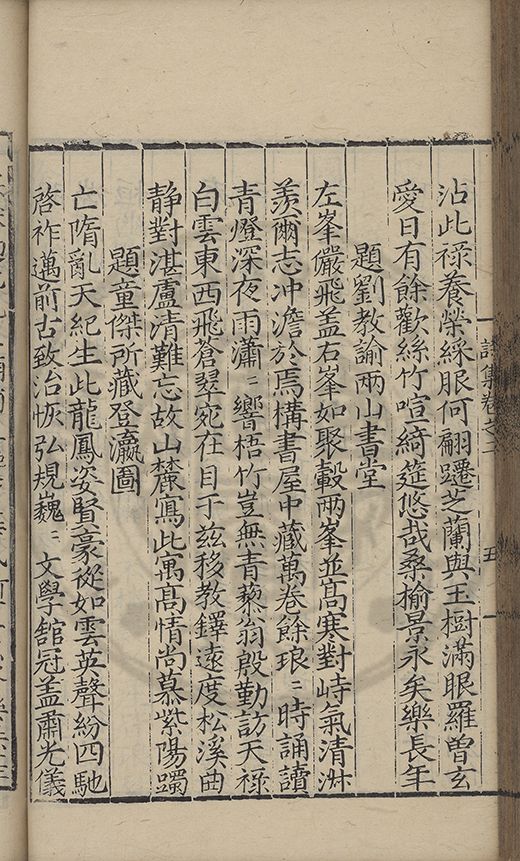 詩集卷之
五
沾此祿養榮綵服何翩躚芝蘭與玉樹滿眼羅曾玄
愛日有餘歡絲竹喧綺筵悠哉桑榆景永矣樂長年
題劉教諭兩山書堂
左峯儼飛盖右峯如聚轂兩峯並高寒對峙氣清淋
羨爾志冲澹於焉構書屋中藏萬卷餘琅〻時誦讀
青燈深夜雨瀟〻響梧竹豈無青藜翁殷勤訪天祿
白雲東西飛蒼翠宛在目于兹移教鐸遠度松溪曲
静對湛盧清難忘故山麓寫此寓高情尚慕紫陽躅
題童傑所藏登瀛圖
亡隋亂天紀生此龍鳳姿賢豪從如雲英聲紛四馳
啓祚邁前古致治恢弘規巍〻文學舘冠盖肅光儀